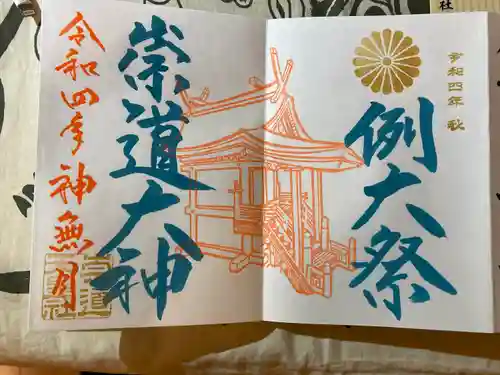 令和四年秋
例大祭
崇道大神
令和四年神無月
社